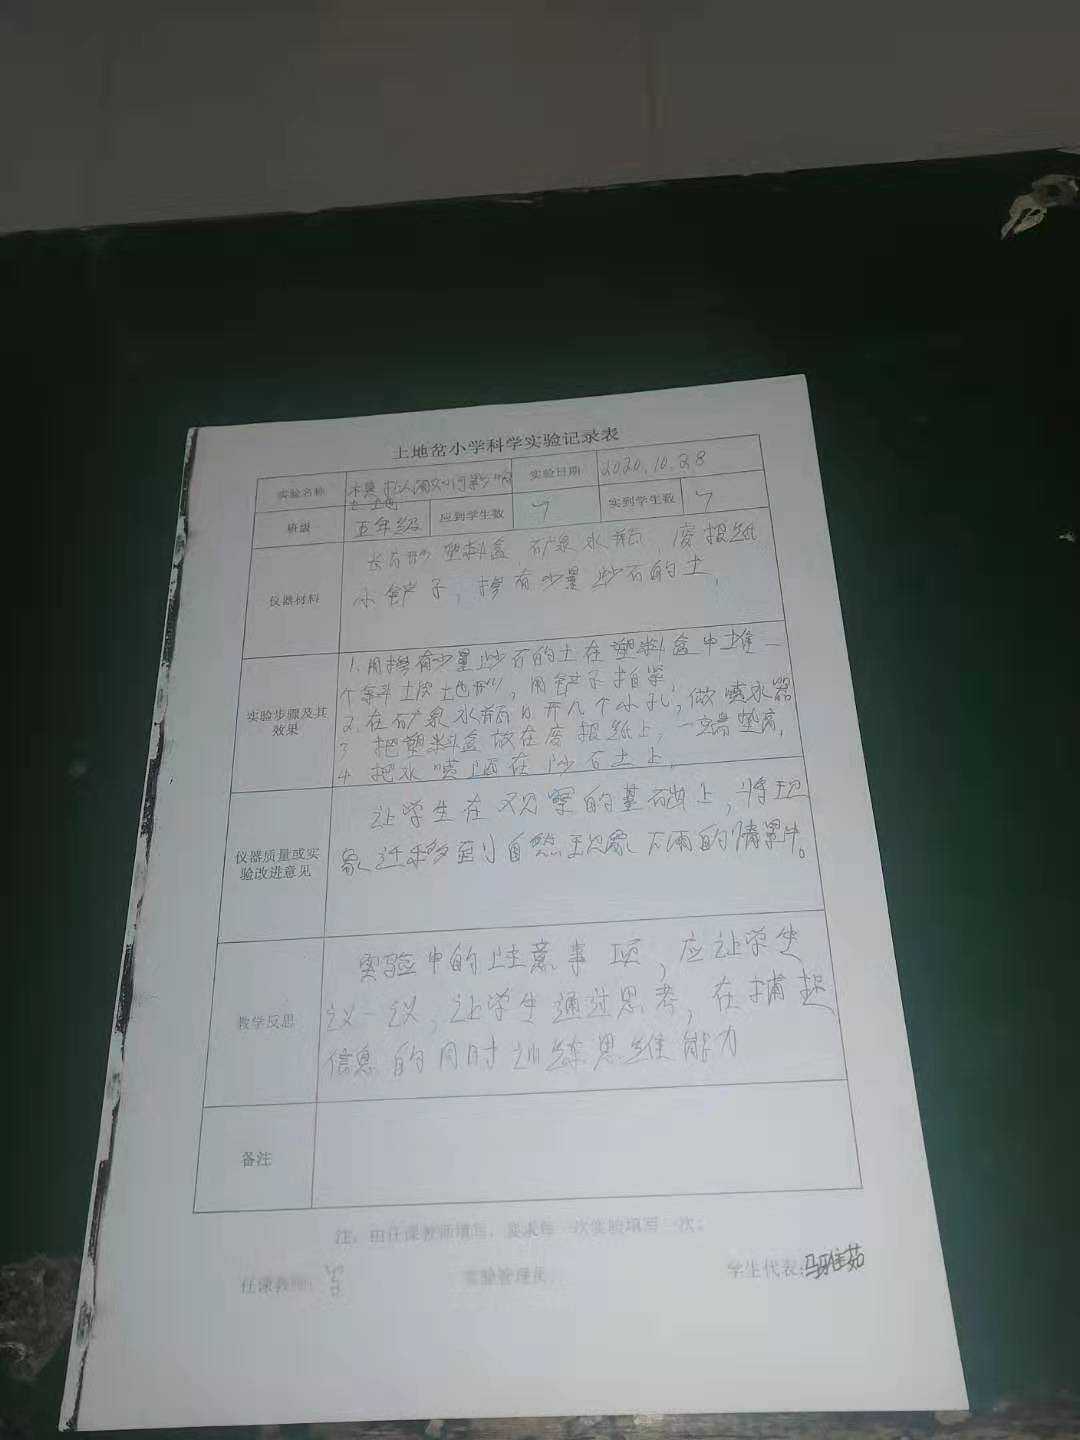 土地岔小学科学实验记录表
实验名称 模拟雨水如何影响土地 实验日期 2020.10.28
班级 五年级 应到学生数 7 实到学生数 7
仪器材料 长方形塑料盒,矿泉水瓶,废报纸
小铲子,掺有少量沙石的土,
实验步骤及其效果 1.用掺有少量沙石的土在塑料盒中堆一
个斜坡地形,用铲子拍紧;
2.在矿泉水瓶 开几个小孔,做喷水器
3 把塑料盒放在废报纸上,一端垫高,
4 把水喷洒在沙石土上,
仪器质量或实验改进意见 让学生在观察的基础上,将现
象迁移到自然现象下雨的情景中。
教学反思 实验中的注意事项,应让学生
议一议,让学生通过思考,在捕捉
信息的同时训练思维能力
备注
注:由任课教师填写,要求每一次实验填写一次;
任课教师: 实验管理员: 学生代表:马雅茹